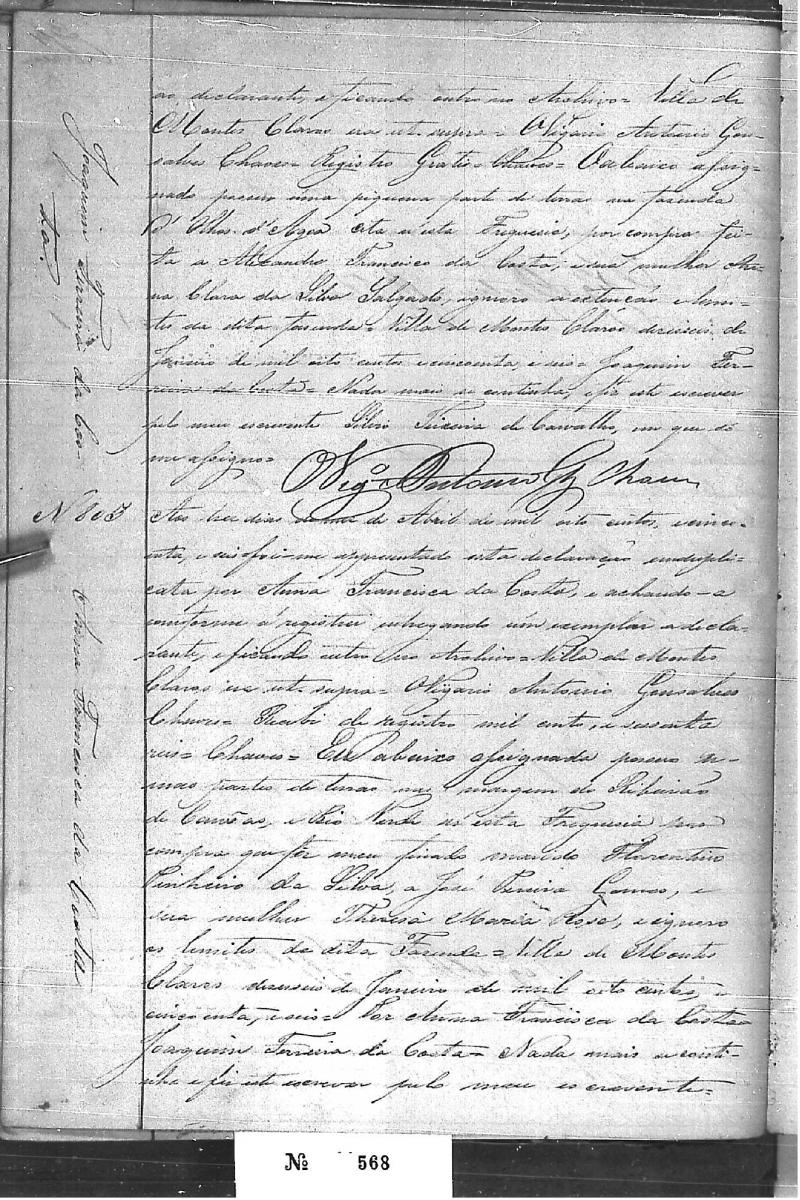 ao declarante, e ficando outro no Archivo = Villa de
Montes Claros era ut supra = O Vigario Antonio Gon-
salves Chaves = Registro Gratis = Chaves = O abaixo assig-
nado possue uma piquena parte de terras na fasenda
d'Olhos d'Agoa cita n'esta Freguesia, por compra fei-
ta a Alexandre Francisco da Costa, e sua mulher An-
na Clara da Silva Salgado, ignoro a extenção e lemi-
tes da dita fasenda = Villa de Montes Claros deseseis de
Janeiro de mil oito centos e cincoenta, e seis = Joaquim Fer-
reira da Costa = Nada mais se continha, e fiz este escrever
pelo meu escrevente Silvio Teixeira de Carvalho, em que só
me assigno =
O Vigº Antonio Glz Chaves
Joaquim Ferreira da Cos-
ta.
N 803
Anna Francisca da Costa
Aos tres dias do mez de Abril de mil oito centos, e cinco-
enta, e seis foi-me appresentado esta declaração em dupli-
cata por Anna Francisca da Costa, e achando-a
conforme a registrei entregando um exemplar a decla-
rante, e ficando outro no Archivo = Villa de Montes
Claros era ut supra = O Vigario Antonio Gonsalves
Chaves = Recebi de registro mil cento, e sessenta
reis = Chaves = Eu abaixo assignada possuo u-
mas partes de terras na margem do Ribeirão
de Canôas, e Rio Verde n'esta Freguesia por
compra que fez meu finado marido Florentino
Pinheiro da Silva, a José Pereira Gomes, e
sua mulher Theresa Maria Rosa, e ignoro
os lemites da dita Fasenda = Villa de Montes
Claros deseseis de Janeiro de mil oito centos, e
cincoenta, e seis = Por Anna Francisca da Costa =
Joaquim Ferreira da Costa = Nada mais se conti-
nha e fiz este escrever pelo meu escrevente =
Nº 568